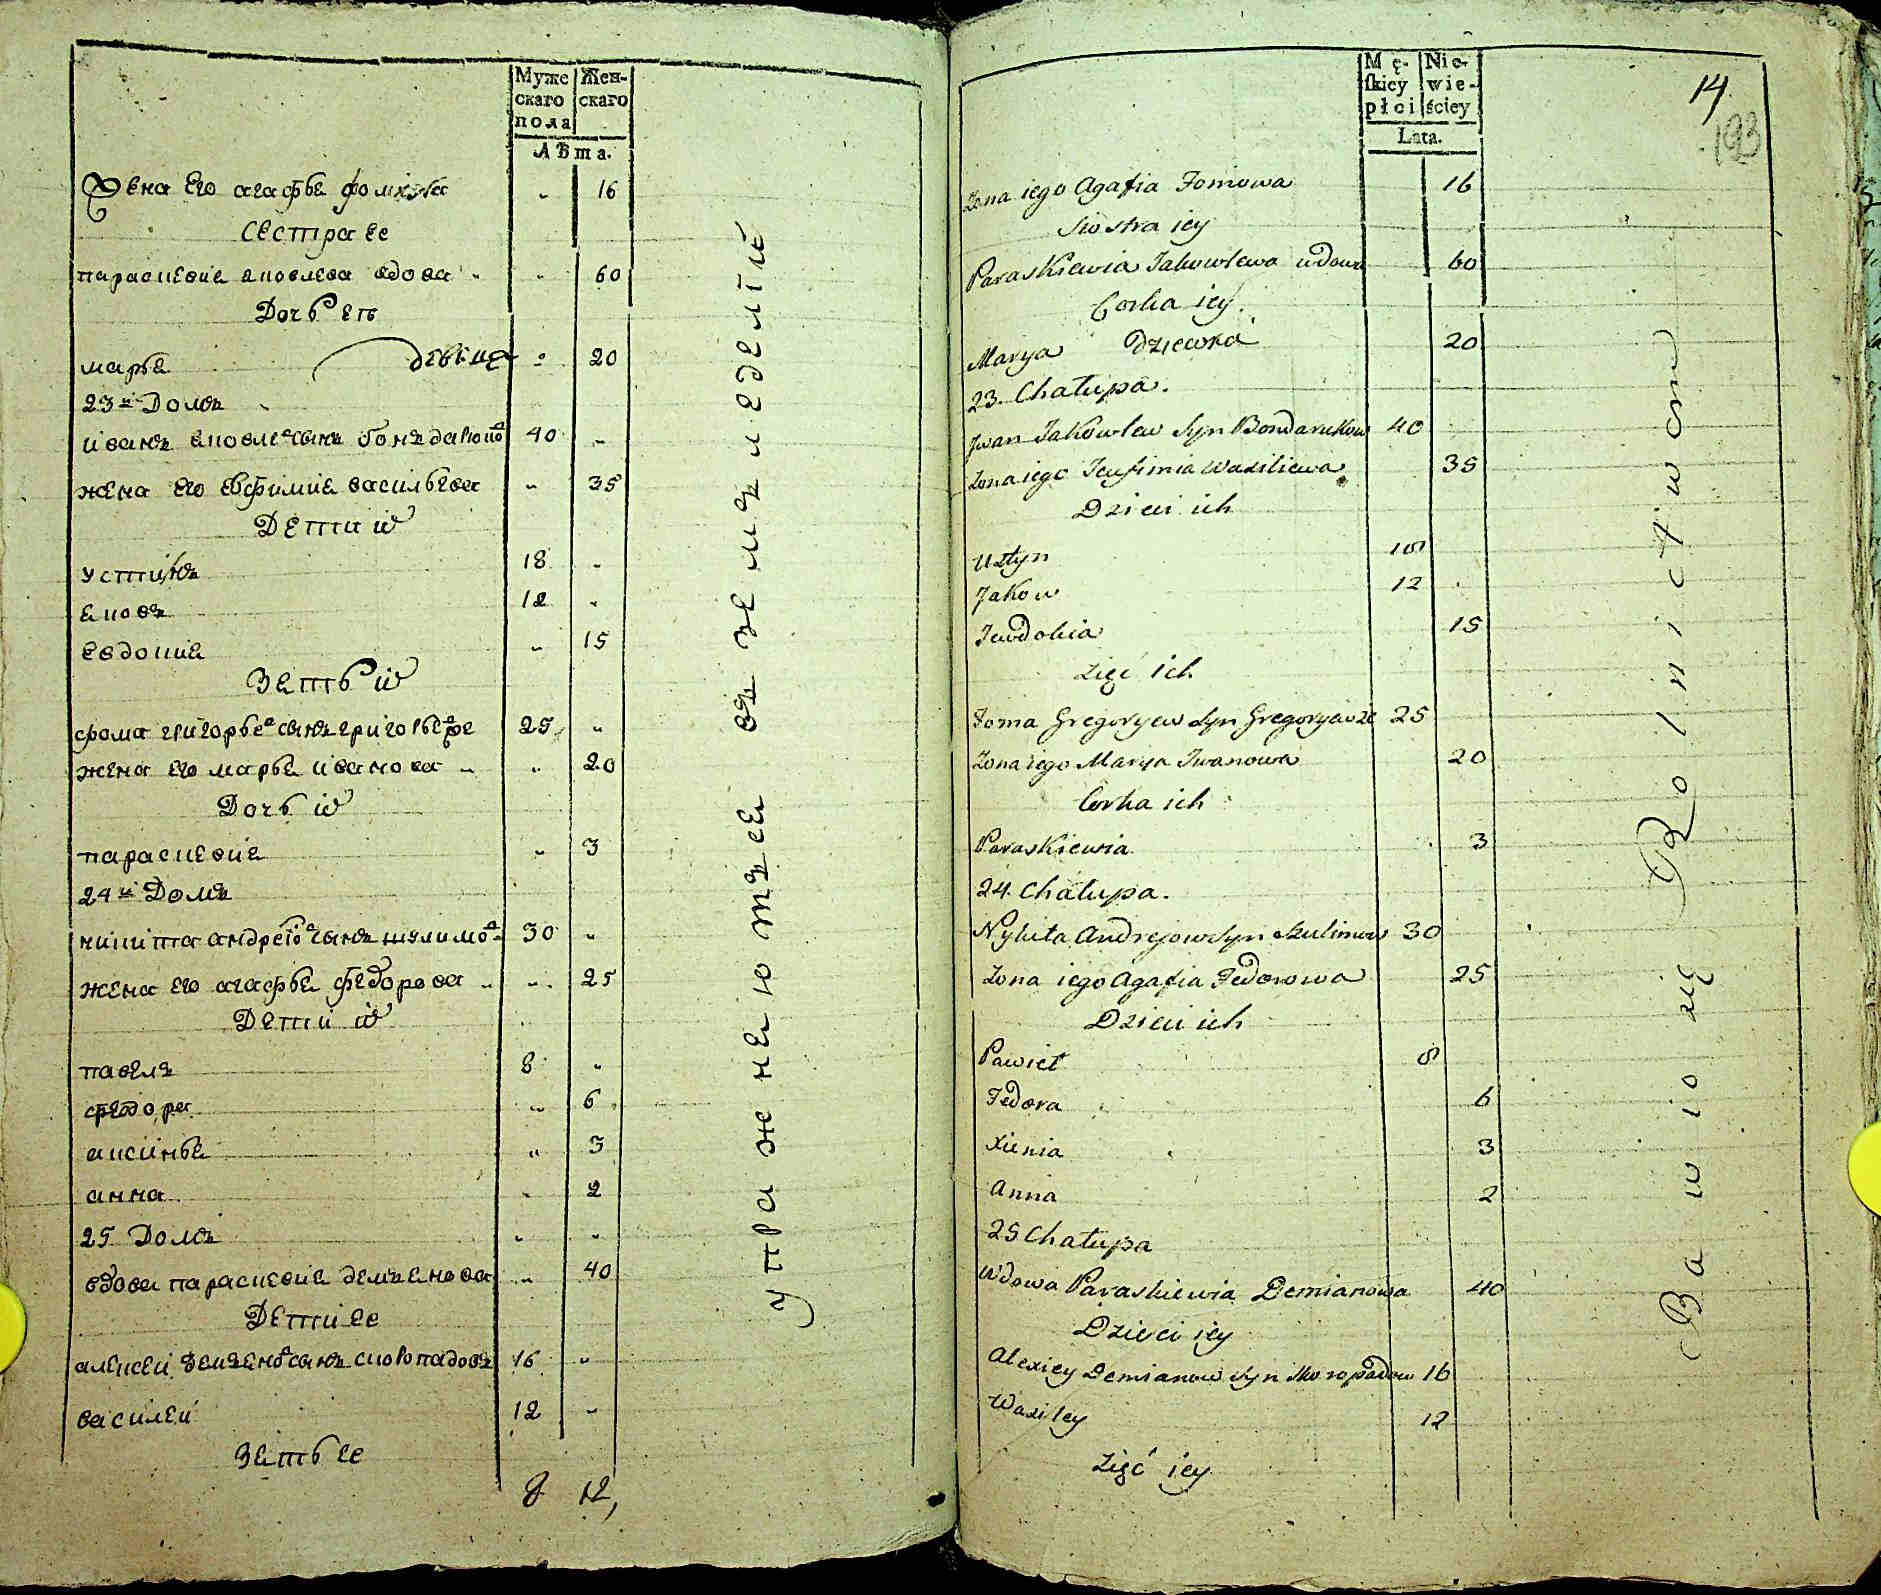 Муже
скаго
пола
Жен-
скаго
Лѣта.
Жена его агафья фомина 16
Сестра ее
параскевия яковлева вдова 60
Дочь еѣ
марья девица 20
23й Домъ
иванъ яковлевъ сынъ бондарюков 40
жена его евфимия васильева 35
Дети их
устинъ 18
яковъ 12
евдокия 15
Зять их
фома григорьев сынъ григорьев 25
жена его марья иванова 20
Дочь их
параскевия 3
24й Домъ
никита андреев сынъ шулимов 30
жена его агафья федорова 25
Дети их
павелъ 8
федора 6
аксинья 3
анна 2
25 Домъ
вдова параскевия демянова 40
Дети ее
алексей демянов сынъ скоропадовъ 16
василей 12
Зять ее
8 12,
упражняютъся въ земъледелии
Mę-
skiey
płci
Nie-
wie-
ściey
Lata.
14
193
Żona iego Agafia Fomowa 16
Siostra iey
Paraskiewia Jakowlewa wdowa 60
Corka iey.
Marya Dziewka 20
23. Chałupa.
Jwan Jakowlew Syn Bondarukow 40
Żona iego Jeufimia Wasiliewa 35
Dzieci ich
Ustyn 18
Jakow 12
Jewdokia 15
Zięć ich
Foma Gregoryew Syn Gregoryew 25
Żona iego Marya Jwanowa 20
Corka ich
Paraskiewia 3
24. Chałupa.
Nykita Andrejow Syn Szulimow 30
Żona iego Agafia Fedorowa 25
Dzieci ich
Pawieł 8
Fedora 6
Xienia 3
Anna 2
25 Chałupa
Wdowa Paraskiewia Demianowa 40
Dzieci iey
Alexiey Demianow Syn Skoropadow 16
Wasiley 12
Zięć iey
Bawią się Rolnictwem